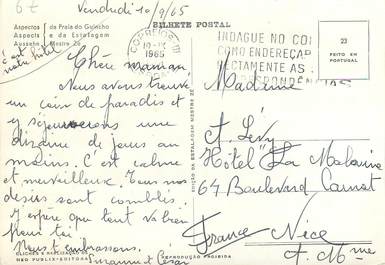 6z
Vendredi 10/9/65
Aspectos da Praia do Guincho
Aspects e da Estalagem
Aussehn Mestre Ze
BILHETE POSTAL
c'est
notre hôtel
CORREIOS
10-IX
1965
INDAGUE NO COR
COMO ENDEREÇAR
RECTAMENTE AS
CORRESPONDÊNCIAS
23
FEITO EM
PORTUGAL
Chère maman
Nous avons trouvé
un coin de paradis et
y séjournerons une
dizaine de jours au
moins. C'est calme
et merveilleux. Tous nos
désirs sont comblés.
J'espère que tout va bien
pour toi
Nous t'embrassons.
Suzanne et César
Madame
A. Lévy
Hôtel "La Malouine
64 Boulevard Carnot
Nice
France A. Mmes
EDIÇÃO DA ESTALAGEM MESTRE ZE
CLICHÉS E REALIZAÇÃO
NEO PUBLIX-EDITORA
REPRODUÇÃO PROIBIDA